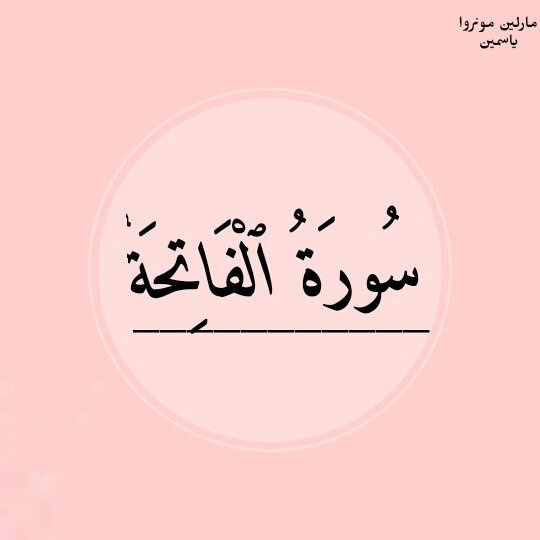 مارلين مونروا
ياسمين
سُورَةُ ٱلْفَاتِحَةِ